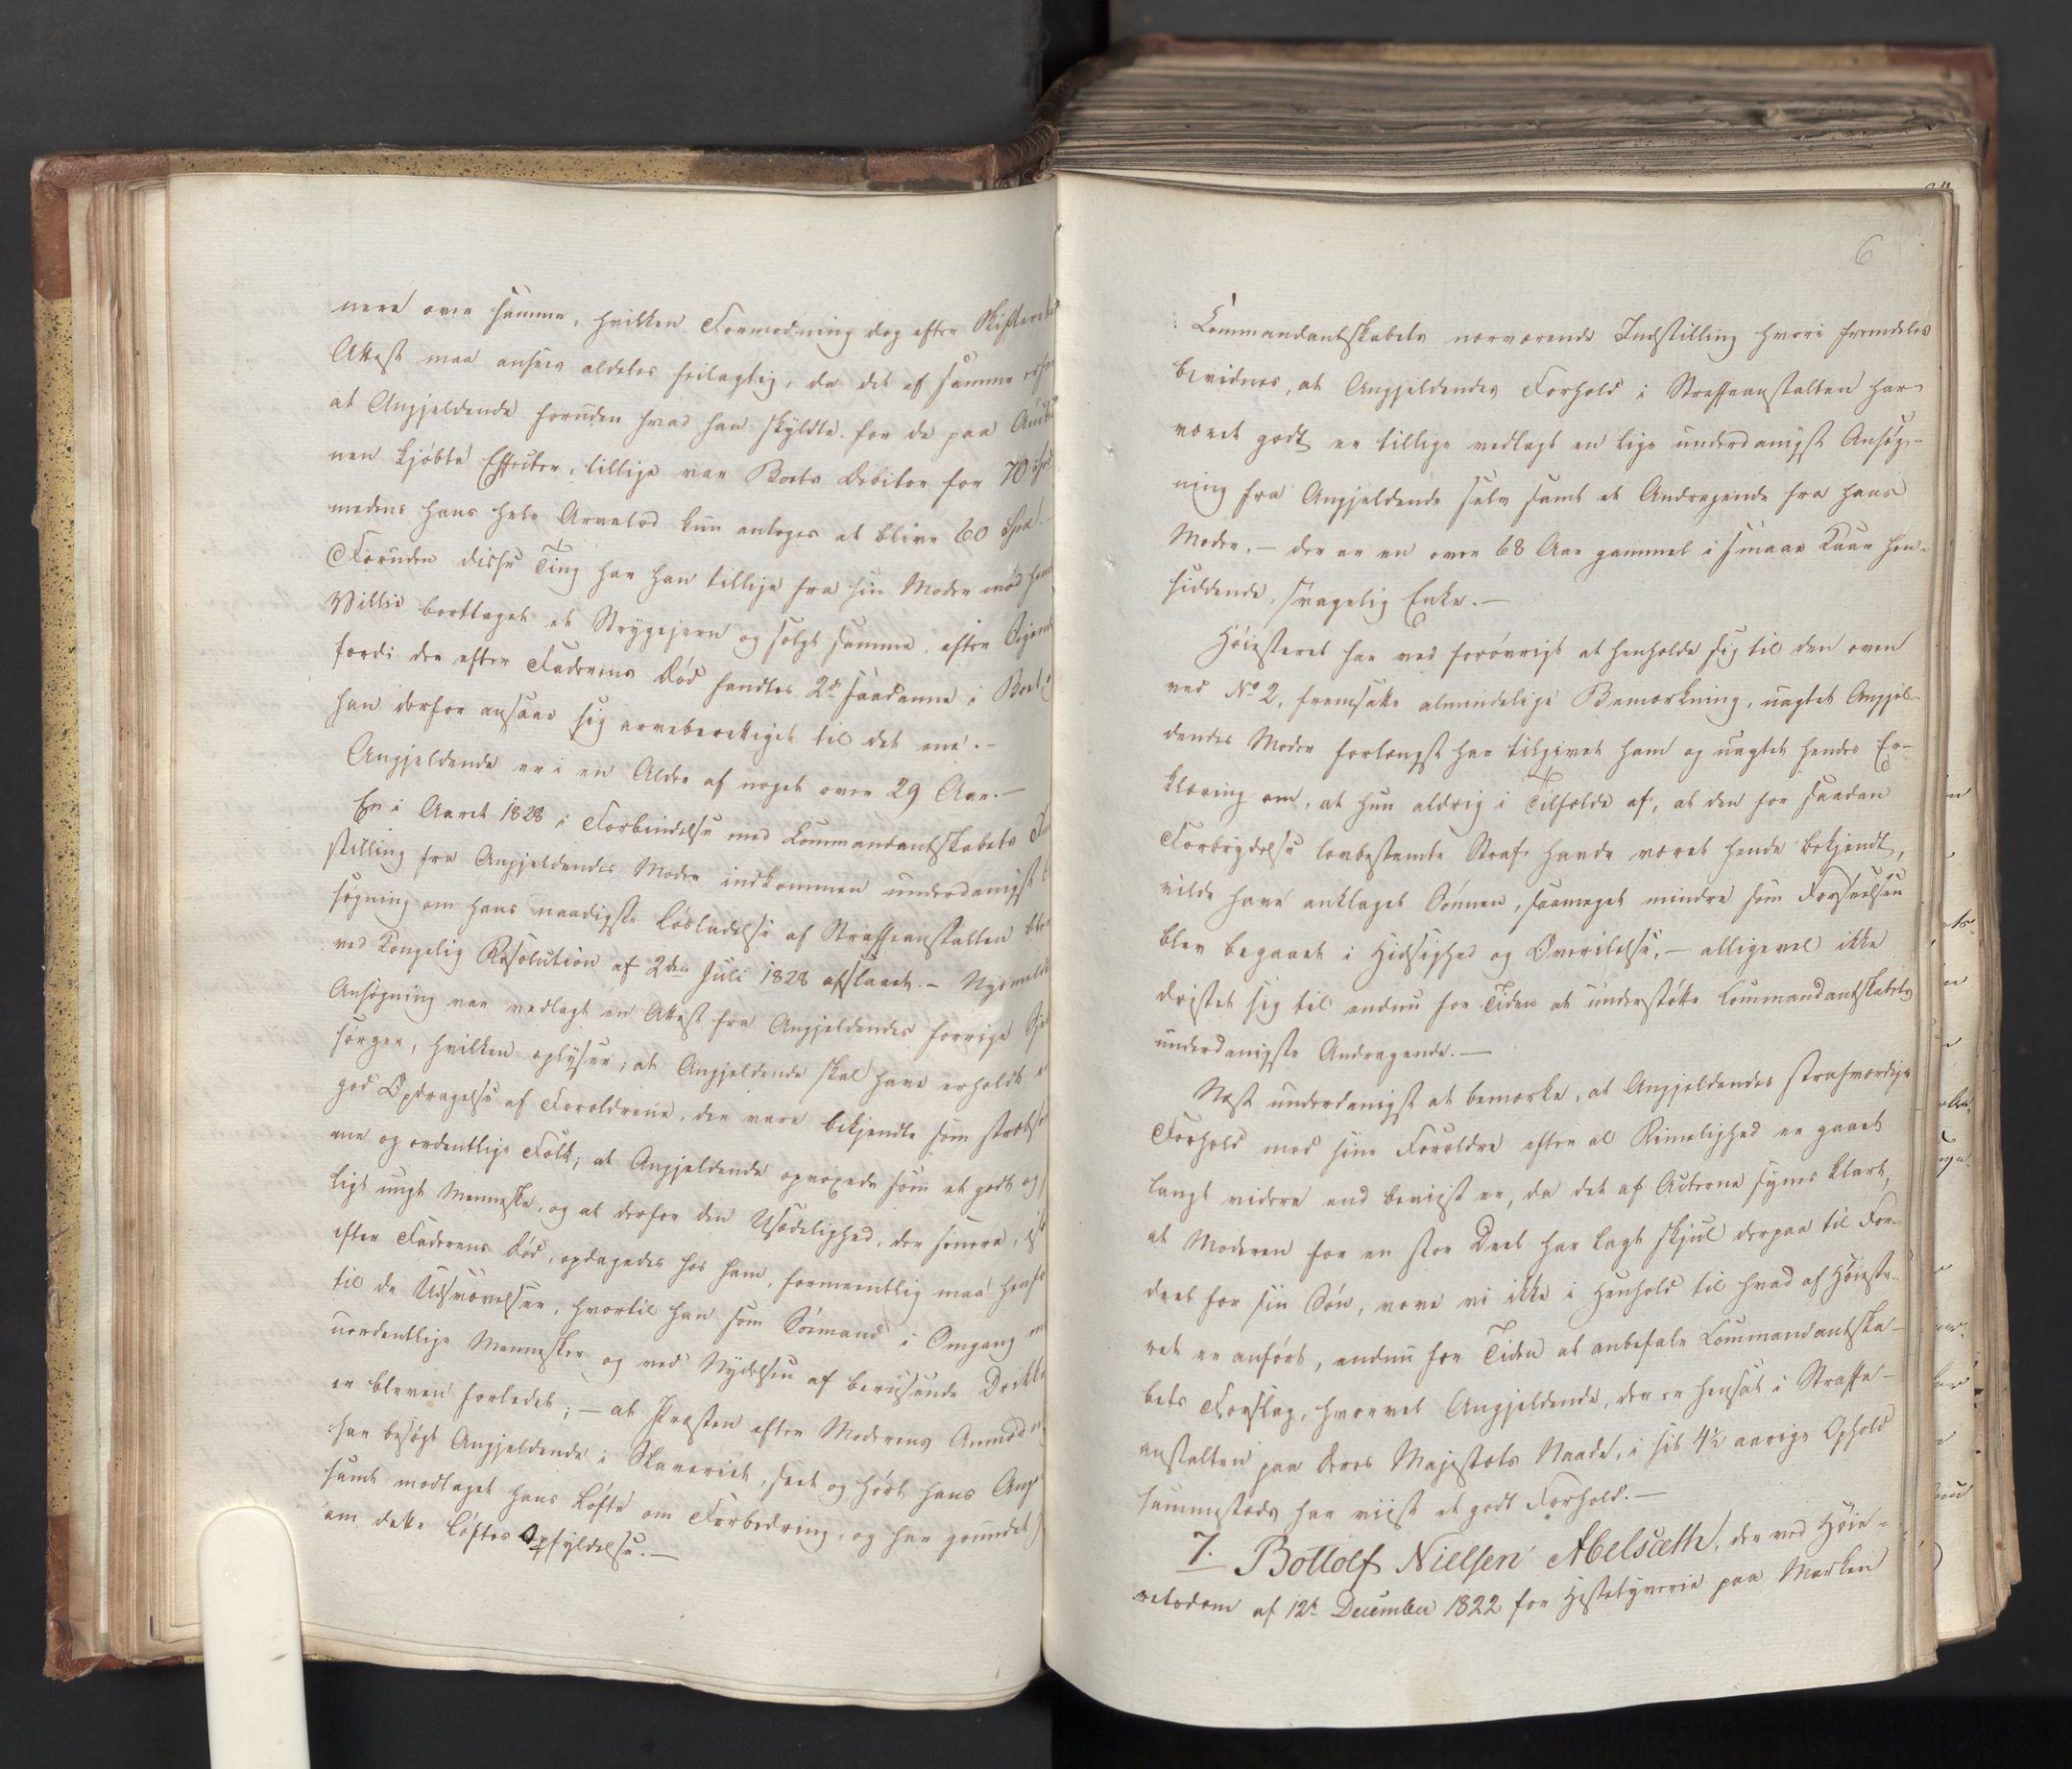 nere over samme, hvilken Formodning dog efter Skifterettens
Attest maa ansees aldeles feilagtig, da det af samme
at Angjeldende foruden hvad han skyldte for de paa
nen kjøbte Effecter, tillige var Boets Debitor for 70
medens hans hele Arvelod kun antoges at blive 60
Foruden disse Ting har han tillige fra sin Moder mod
Villie borttaget et Strygejern og solgt samme, efter
fordi der efter Faderens Død fandtes 2de saadanne i Boet,
han derfor ansaae sig arveberettiget til det ene.–
Angjeldende er i en Alder af noget over 29 Aar.–
En i Aaret 1828 i Forbindelse med Commandantskabets
stilling fra Angjeldendes Moder indkommen underdanigst
søgning om hans naadigste Løsladelse af Straffeanstalten
ved Kongelig Resolution af 2den Juli 1828 afslaaet.–
Ansøgning var vedlagt en Attest fra Angjeldendes forrige
sørger, hvilken oplyser; at Angjeldende skal have erholdt
god Opdragelse af Forældrene, der vare bekjendte som
me og ordentlige Folk; at Angjeldende opvoxede som et godt og
ligt ungt Menneske, og at derfor den Usædelighed, der senere,
efter Faderens Død, opdagedes hos ham, formeentlig maa
til de Udsvævelser, hvortil han som Sømand i Omgang
uordentlige Mennesker og ved Nydelsen af berusende Drikke
er bleven forledet; – at Præsten efter Moderens
har besøgt Angjeldende i Slaveriet, seet og hørt hans
samt modtaget hans Løfte om Forbedring, og har grundet
om dette Løftes Opfyldelse.–
6
Commandantskabets nærværende Indstilling hvori fremdeles
bevidnes, at Angjeldendes Forhold i Straffeanstalten har
været godt er tillige vedlagt en lige underdanigst Ansøg-
ning fra Angjeldende selv samt et Andragende fra hans
Moder, – der er en over 68 Aar gammel i smaae Kaar hen-
siddende, svagelig Enke.–
Høiesteret har ved forøvrigt at henholde sig til den oven
ved No 2, fremsatte almindelige Bemærkning, uagtet Angjel-
dendes Moder forlængst har tilgivet ham og uagtet hendes Er-
klæring om, at hun aldrig i Tilfælde af, at den for saadan
Forbrydelse lovbestemte Straf havde været hende bekjendt,
vilde have anklaget Sønnen, saameget mindre som Forseelsen
blev begaaet i Hidsighed og Overilelse, – alligevel ikke
dristet sig til endnu for Tiden at understøtte Commandantskabets
underdanigste Andragende.–
Næst underdanigst at bemærke, at Angjeldendes strafværdige
Forhold mod sine Forældre efter al Rimelighed er gaaet
langt videre end beviist er, da det af Acterne synes klart,
at Moderen for en stor Deel har lagt skjul derpaa til For-
deel for sin Søn, vove vi ikke i Henhold til hvad af Høieste-
ret er anført, endnu for Tiden at anbefale Commandantska-
bets Forslag, hvorvel Angjeldende, der er hensat i Straffe-
anstalten paa Deres Majestæts Naade, i sit 4½ aarige Ophold
sammesteds har viist et godt Forhold.–
7. Bottolf Nielsen Abelsæth, der ved Høie-
retsdom af 12te December 1822 for Hestetyverie paa Marken